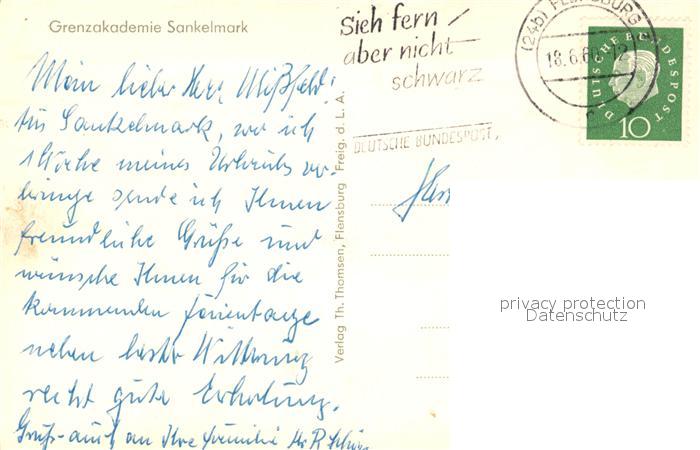 Grenzakademie Sankelmark
Mein lieber Herr Mißfeld!
Aus Sankelmark, wo ich
1 Woche meines Urlaubs ver-
bringe sende ich Ihnen
freundliche Grüße und
wünsche Ihnen für die
kommenden Ferientage
neben bester Witterung
recht gute Erholung.
Gruß auch an Ihre Familie Ihr R.
Verlag Th. Thomsen, Flensburg Freig. d. L. A.
Sieh fern
aber nicht
schwarz
DEUTSCHE BUNDESPOST
(24b) FLENSBURG
18.6.60-12
c
DEUTSCHE BUNDESPOST
10
privacy protection
Datenschutz